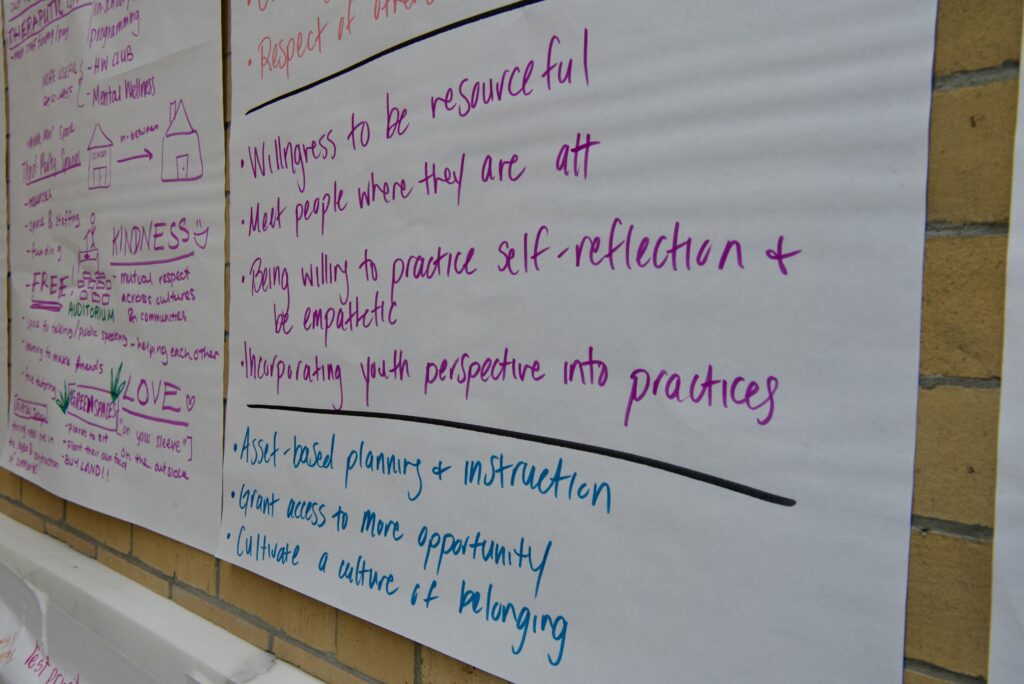 THERAPUTIC
programming
HW CLUB
Mental Wellness
in-between
SCHOOL
Third Party Spaces
- resources
- space & staffing
- funding
- FREE!
AUDITORIUM
KINDNESS
- mutual respect
across cultures
& communities
- helping each other
- learning to make friends
- free tutoring
GREENSPACES
- places to sit
- plant their own food
- BUY LAND!!
LOVE
["on your sleeve"]
on the outside
• Respect of others
• Willngress to be resourceful
• Meet people where they are att
• Being willing to practice self-reflection &
be empathetic
• Incorporating youth perspective into practices
• Asset-based planning & instruction
• Grant access to more opportunity
• Cultivate a culture of belonging